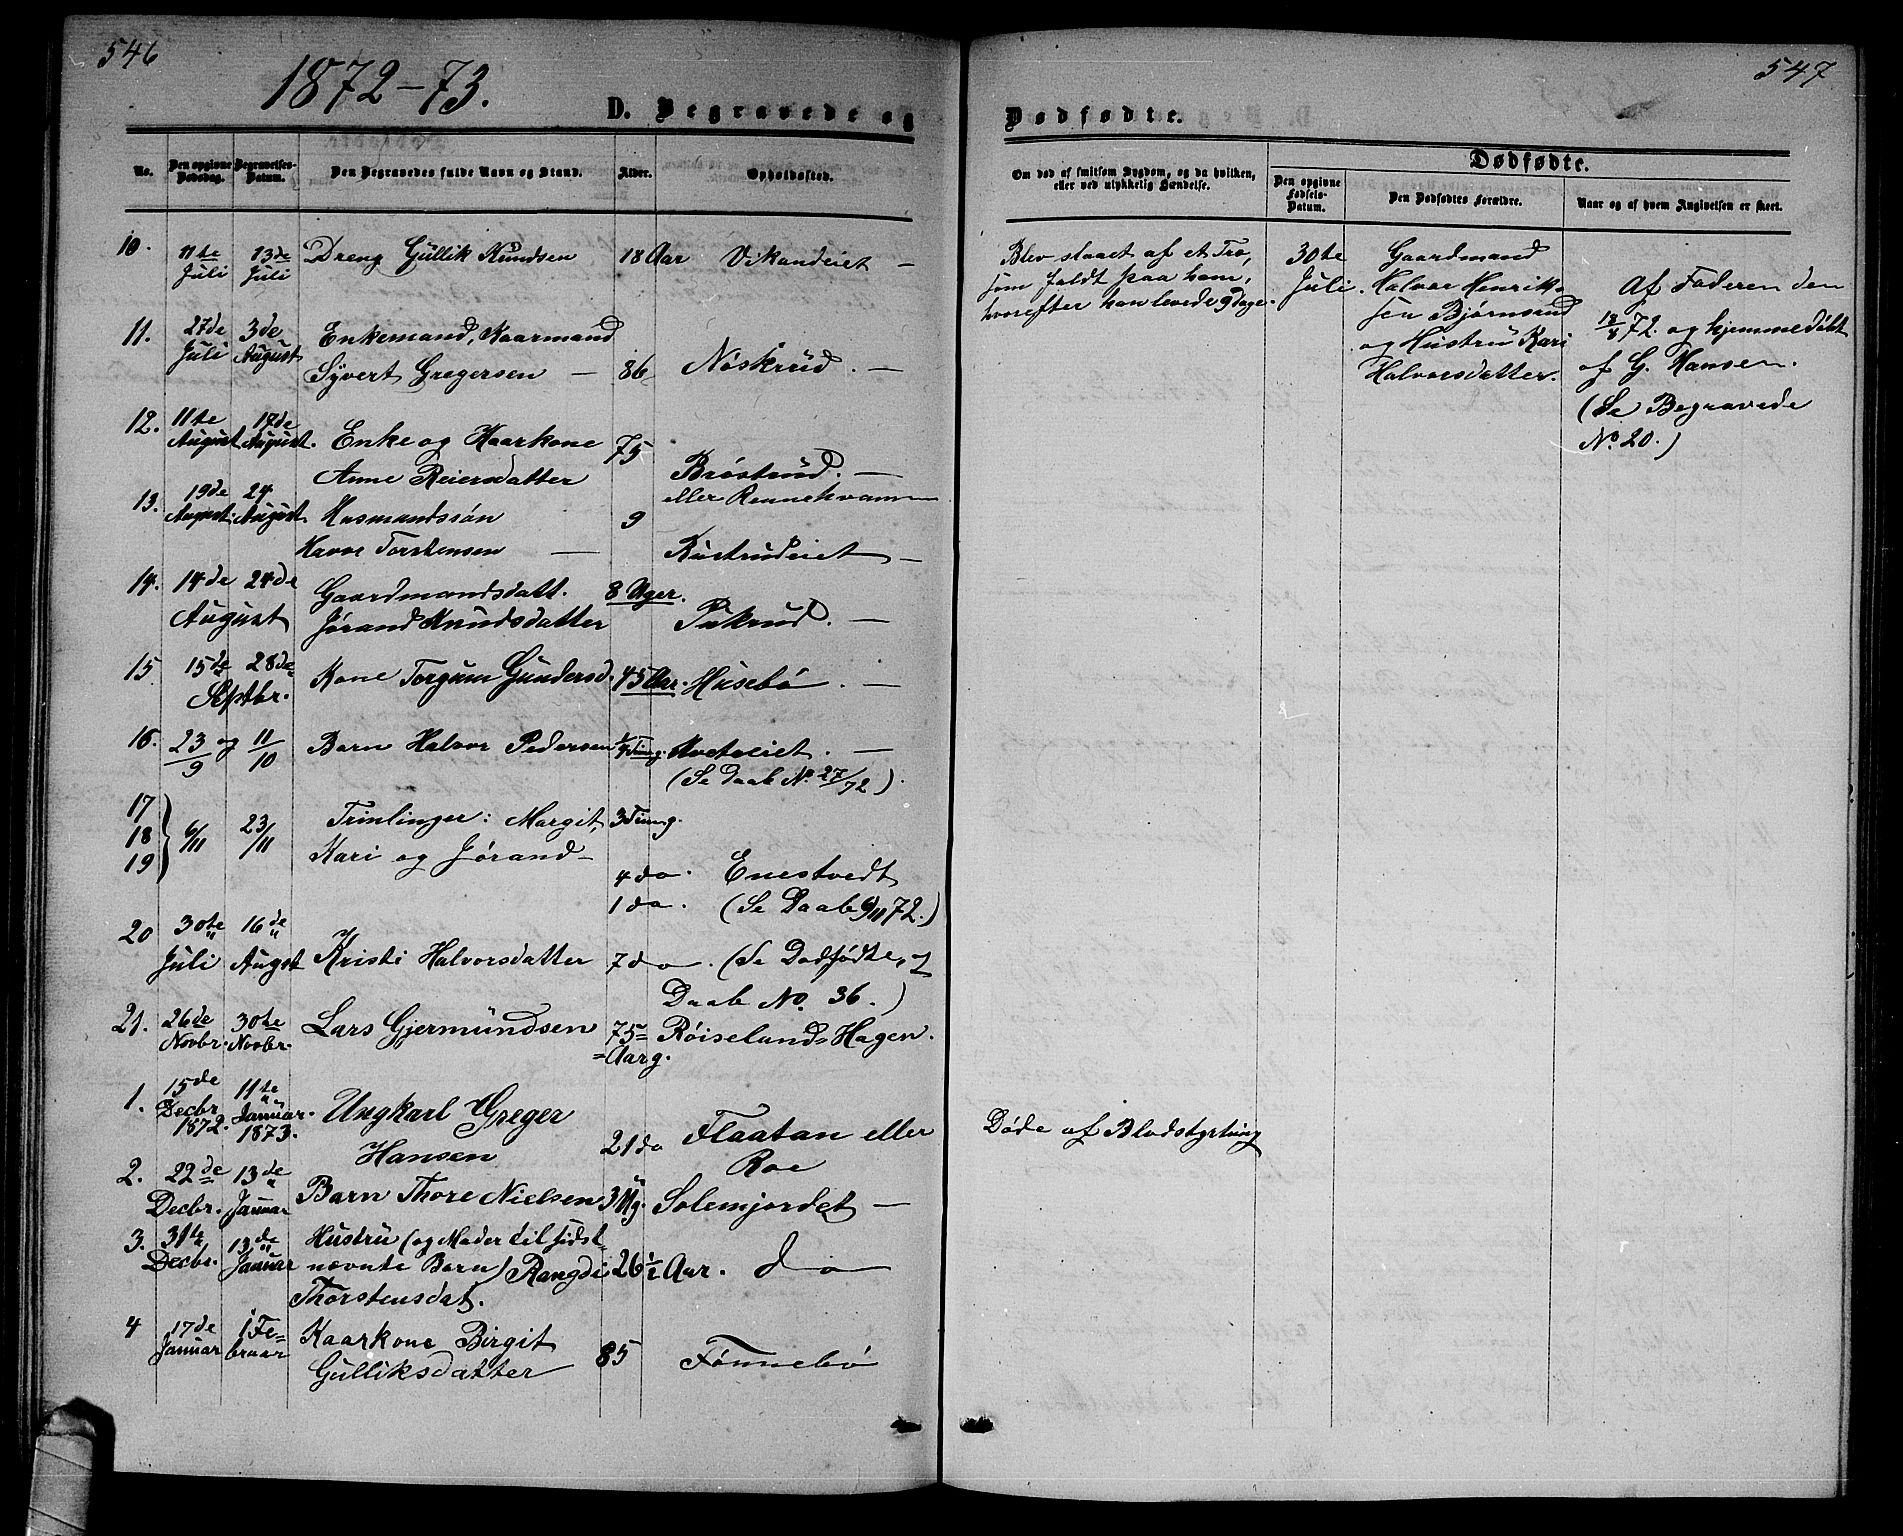 546
1872-73.
D. Begravede og
No.
Den opgivne Dødsdag.
Begravelses-Datum.
Den Begravedes fulde Navn og Stand.
Alder.
Opholdssted.
10. 11te Juli 13de Juli Dreng Güllik Knudsen 18 Aar Vikandeiet —
11. 27de Juli 3de August Enkemand, Kaarmand
Syvert Gregersen — 86 Nöskrüd. —
12. 11te August 17de August. Enke og Kaarkone 75
Anne Reiersdatter Bröstrüd. —
eller Rennehvamm
13. 19de August. 24 August Husmandssön 9
Havor Torstensen — Rustrudeiet —
14. 14de August 24de Gaardmandsdatt. 8 Uger.
Jørand Knudsdatter Pukrud. —
15 15de Septbr. 28de Kone Torgum Gundersd. 45 Aar. Husebö. —
16. 23/9 og 11/10 Barn Halvor Pedersen 1/4 Timg. —
(Se Daab No. 27/72).
17
18
19 } 6/11 23/11 Trinlinger: Margit, 3 Timg.
Kari og Jørand —
4 do. Enestvedt
1 do. (Se Daab 6/11 72.)
20 30te Juli 16de Augst Kristi Halvorsdatter 7 do. (Se Dødfødte, og
Daab No. 36.)
21. 26de Novbr. 30te Novbr. Lars Gjermündsen 75 Aarg. Røiselands Hagen.
1. 15de Decbr 1872. 11te Januar. 1873. Ungkarl Greger
Hansen 21 do Flaatan eller
Roe
2. 22de Decbr. 13de Januar Barn Thore Nielsen 3 Ug. Solemjordet —
3. 31te Decbr. 13de Januar Hustru (og Moder til sidst-
nævnte Barn) Rangdi 26 1/2 Aar. do
Thorstensdat.
4 17de Januar 1 Februar Kaarkone Birgit
Gülliksdatter 85 Fønnebö
547
Dødfødte.
Om død af smitsom Sygdom, og da hvilken,
eller ved ulykkelig Hændelse.
Dødfødte.
Den opgivne Fødsels-Datum.
Den Dødfødtes Forældre.
Naar og af hvem Angivelsen er skeet.
Blev slaaet af et Træ,
som faldt paa ham,
hvorefter han levede 9 dage.
30te
Juli.
Gaardmand
Halvor Henrik-
sen Bjørnsrud
og Hustru Kari
Halvorsdatter.
Af Faderen den
18/8 72. og hjemmedøbt
af G. Hansen.
(Se Begravede
No. 20.)
Døde af Blodstyrtning